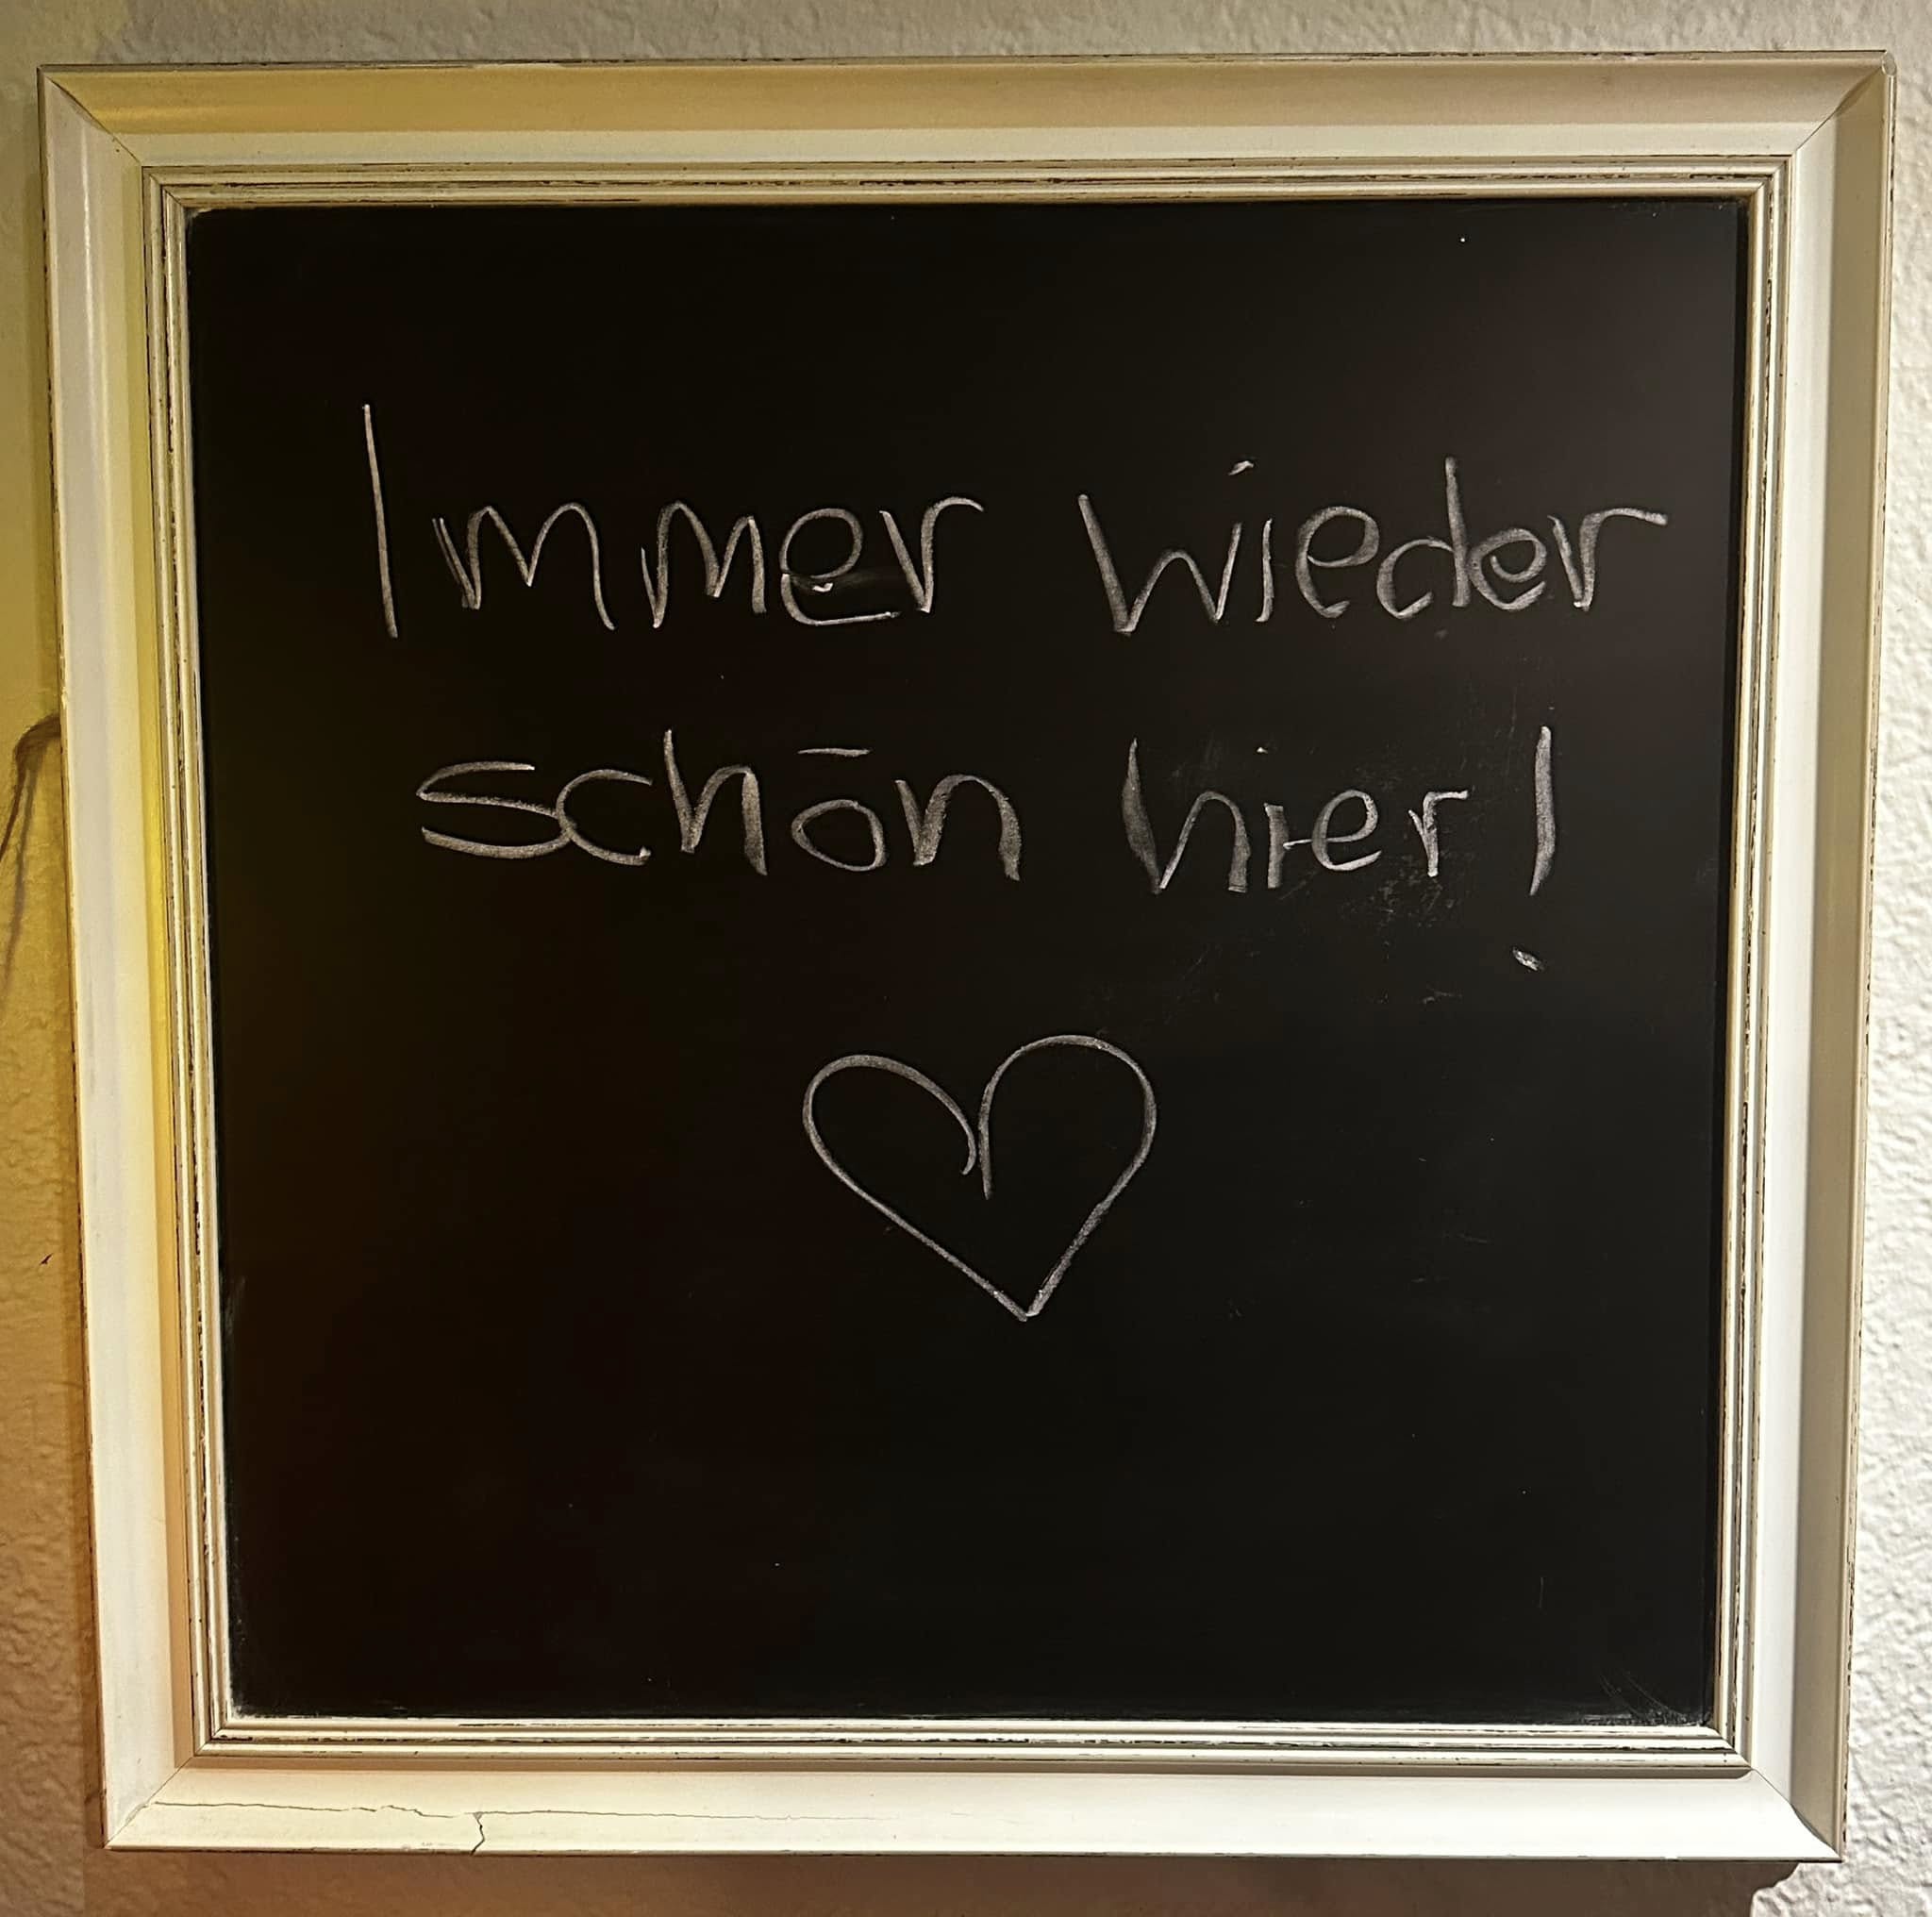 Immer wieder
schön hier!